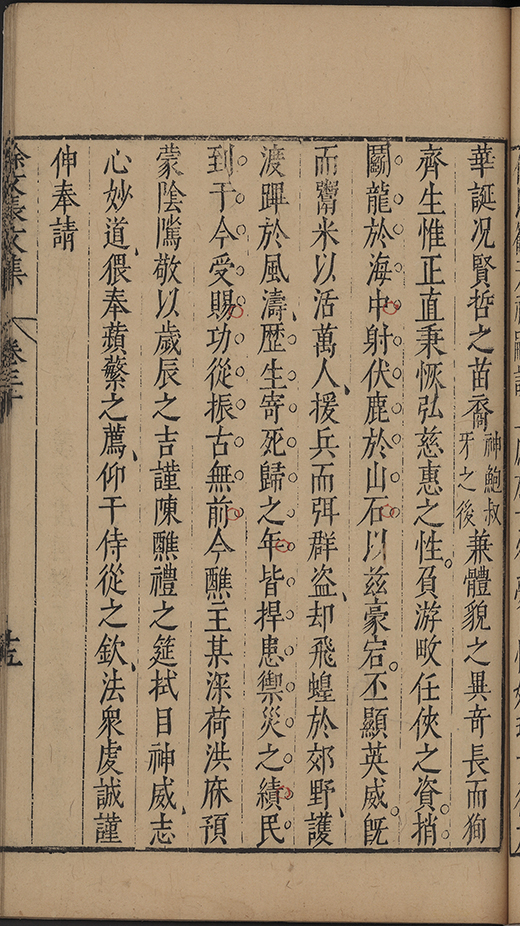 華誕况賢哲之苗裔神鮑叔牙之後兼體貌之異奇長而狥
齊生惟正直秉恢弘慈惠之性。負游畋任俠之資。捎
鬭龍於海中射伏鹿於山石以兹豪宕。不顯英威。旣
而鬻米以活萬人、援兵而弭群盗、却飛蝗於郊野、護
渡軃於風濤、歷生寄死歸之年皆捍患禦災之績民
到于今受賜功從振古無前今醮主某深荷洪庥預
蒙陰隲敬以歲辰之吉謹陳醮禮之筵拭目神威、志
心妙道、猥奉蘋蘩之薦、仰干侍從之欽、法衆虔誠謹
伸奉請
徐文長文集 卷三十 十五